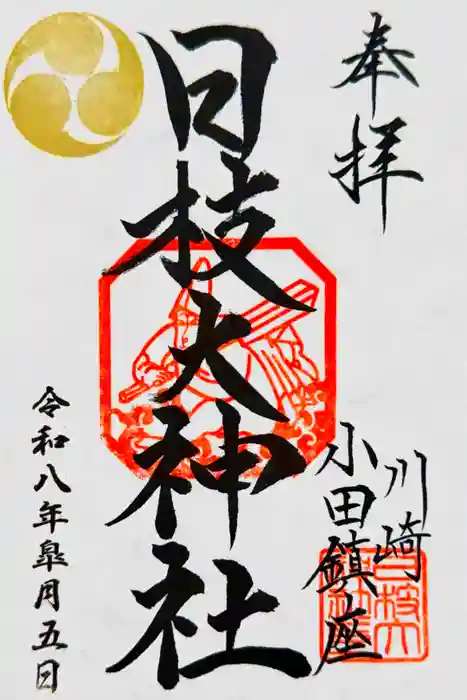 奉拝
川崎
小田鎮座
日枝大神社
令和八年皐月五日